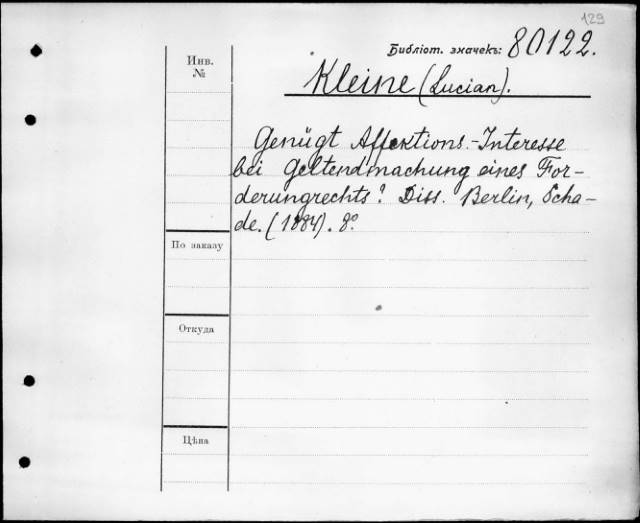 129
Библіот. значекъ: 80122.
Инв.
№
Kleine (Lucian).
Genügt Affektions-Interesse
bei Geltendmachung eines For-
derungrechts? Diss. Berlin, Scha-
de. (1884). 8º
По заказу
Откуда
Цѣна